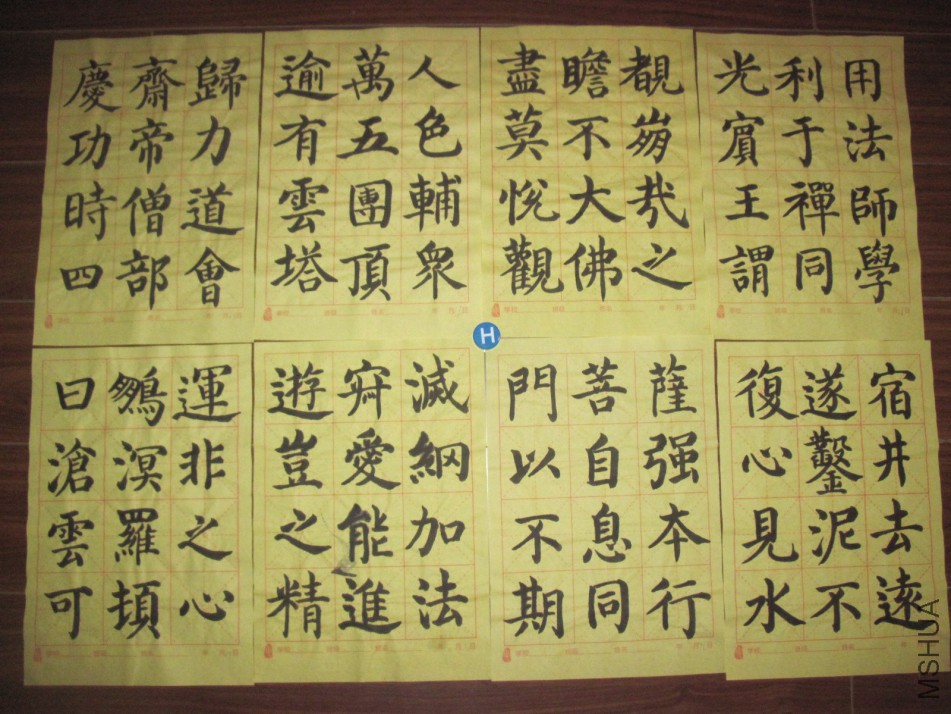 慶齋歸
功帝力
時僧道
四部會
逾萬人
有五色
雲團輔
塔頂眾
盡瞻覩
莫不崩
悅大哉
觀佛之
光利用
賓于法
王禪師
謂同學
曰鵬運
滄溟非
雲羅之
可頓心
遊寂滅
豈愛網
之能加
精進法
門菩薩
以自强
不息本
期同行
復遂宿
心鑿井
見泥去
水不遠
H
MSHUA